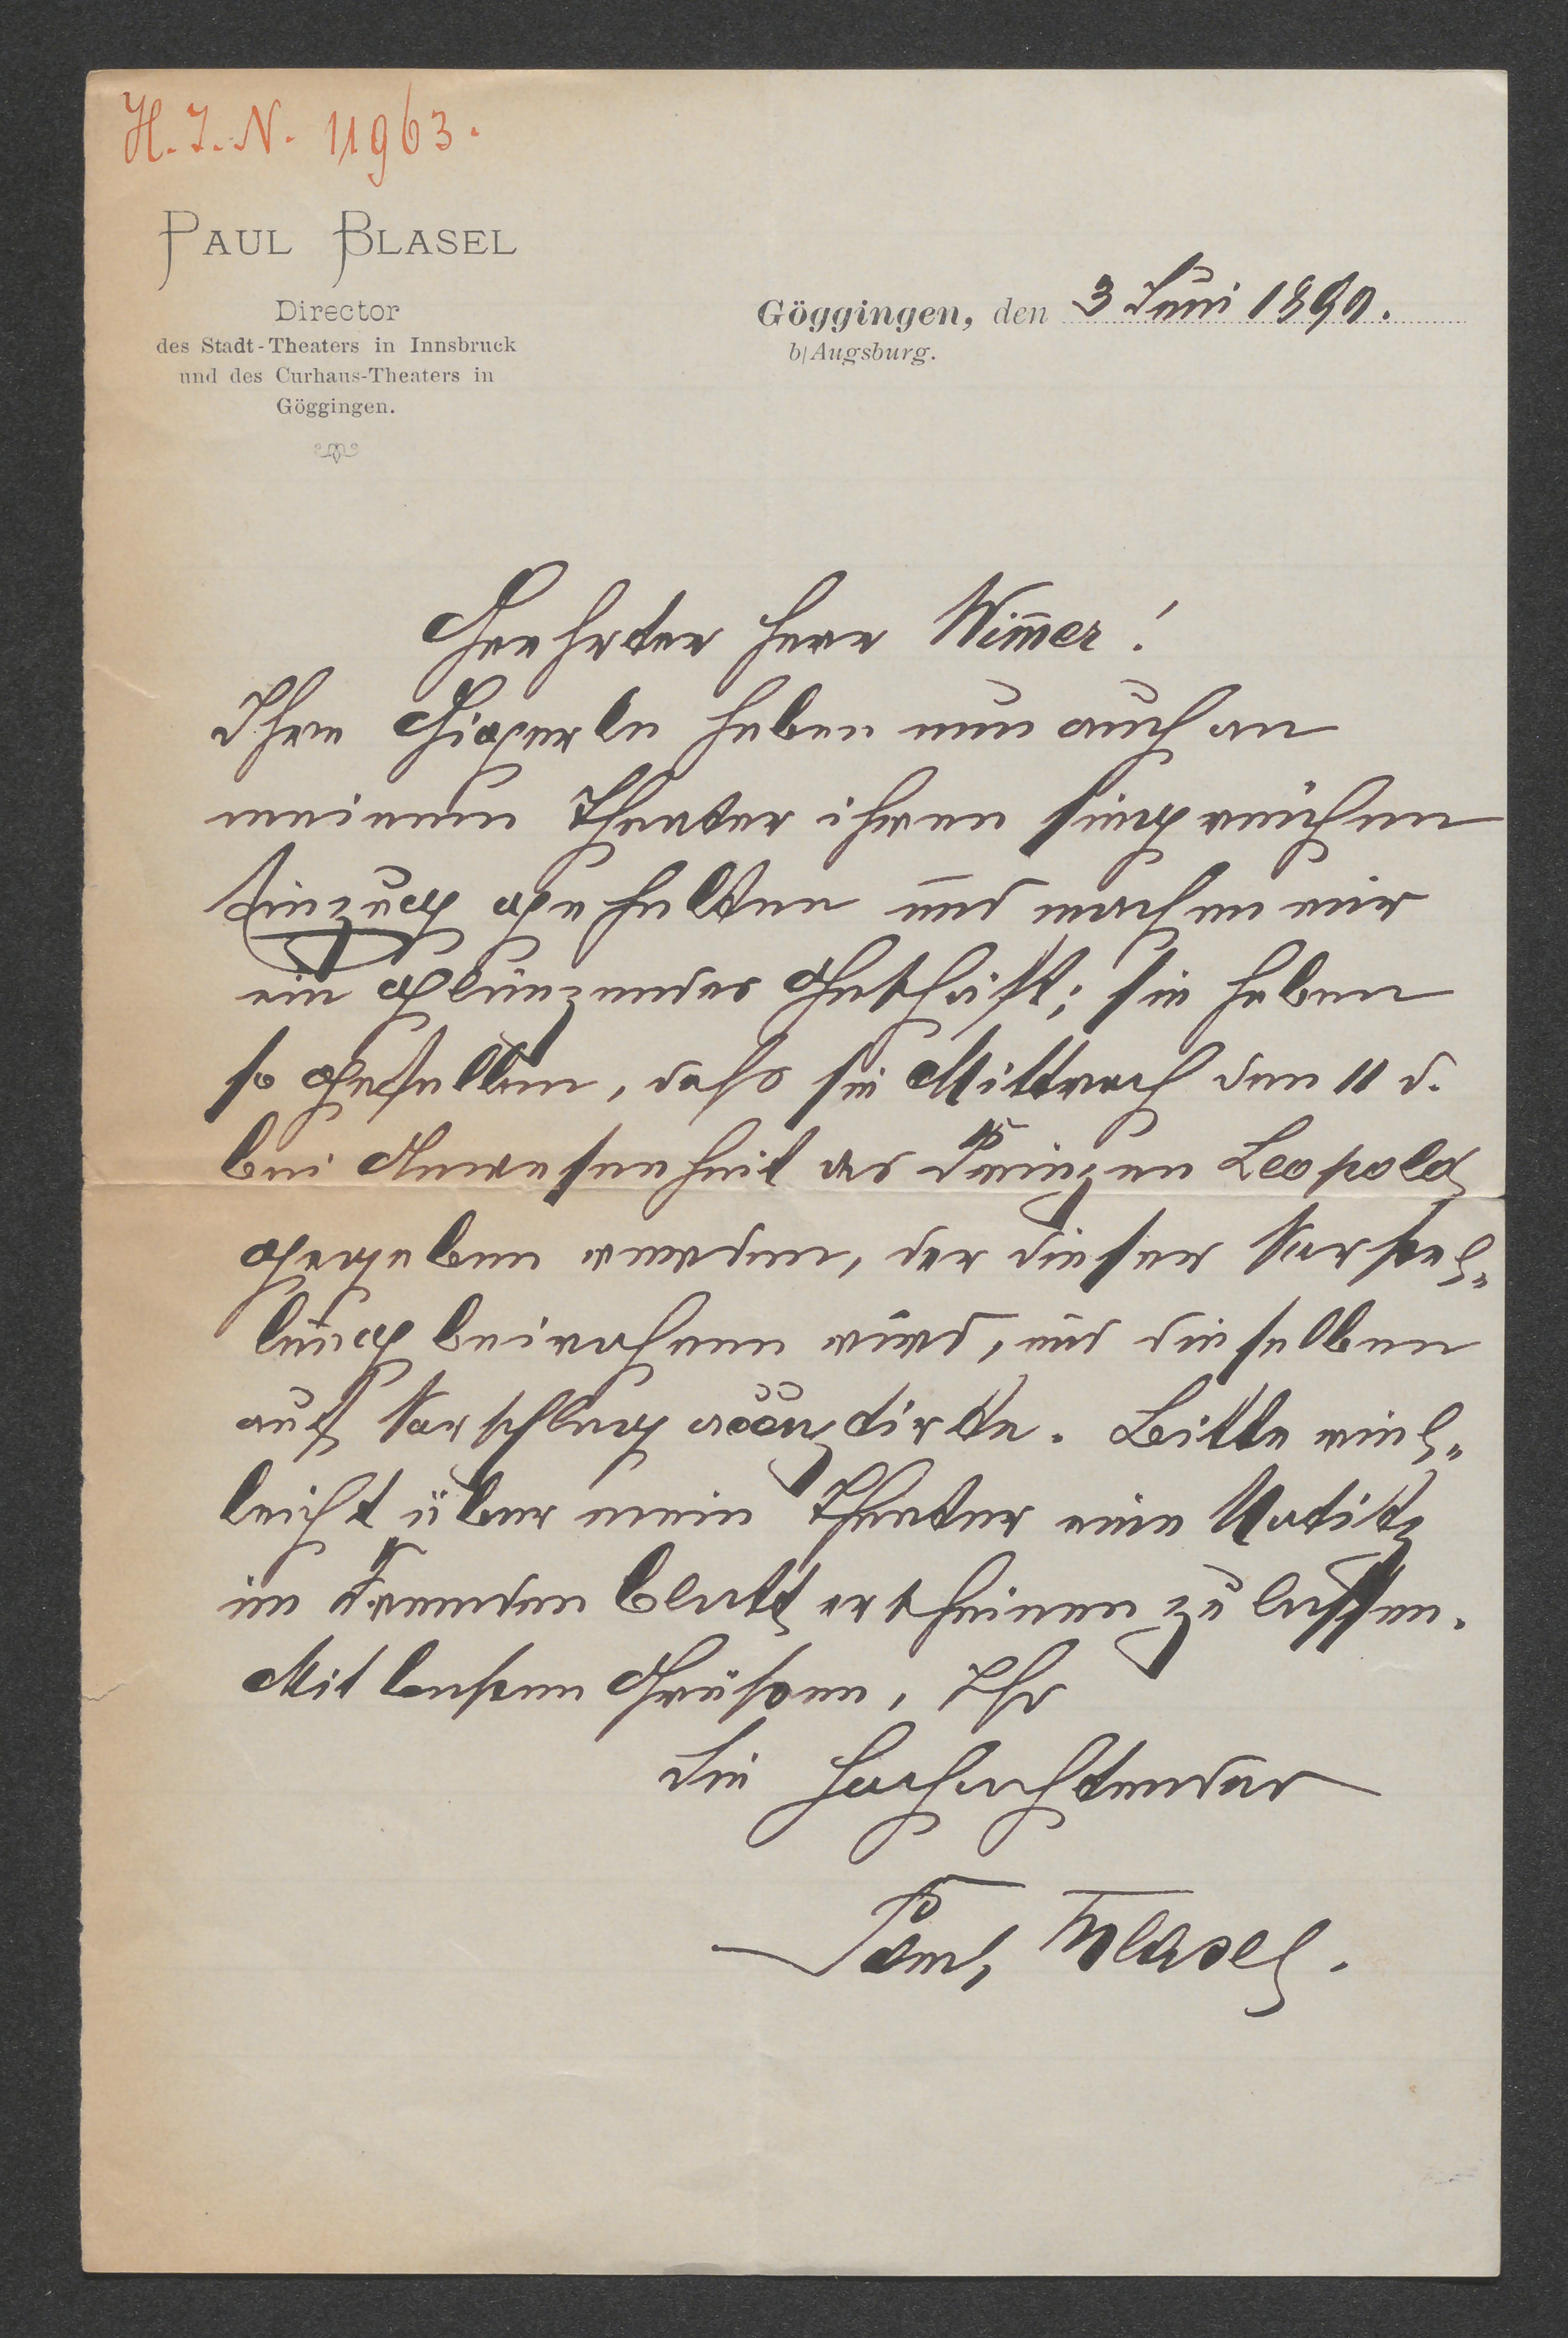 H. I. N. 11963.
PAUL BLASEL
Director
des Stadt-Theaters in Innsbruck
und des Curhaus-Theaters in
Göggingen.
Göggingen, den 3 Juni 1890.
b/Augsburg.
Geehrter Herr Wim̅er!
Ihre Gigerln haben nun auch an
meinem Theater ihren siegreichen
Einzug gehalten und machen mir
ein glänzendes Geschäft; sie haben
so gefallen, dass sie Mittwoch den 11 d.
bei Anwesenheit des Prinzen Leopold
gegeben werden, der dieser Vorstel-
lung beiwohnen wird, und dieselben
auf Vorschlag acceptirte. Bitte viel-
leicht über mein Theater eine Notitz
im Fremdenblatt erscheinen zu lassen.
Mit besten Grüssen, Ihr
Sie Hochachtender
Paul Blasel.